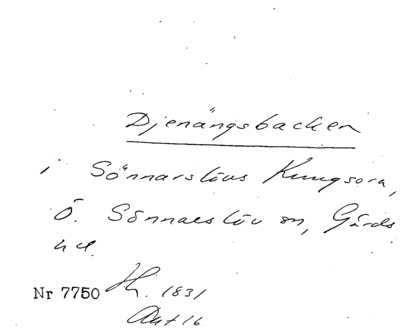 Djenängsbacken
i Sönnarslövs Kungsora,
Ö. Sönnarslöv sn, Gärds
hd.
Nr 7750 Hh. 1831
Akt 16